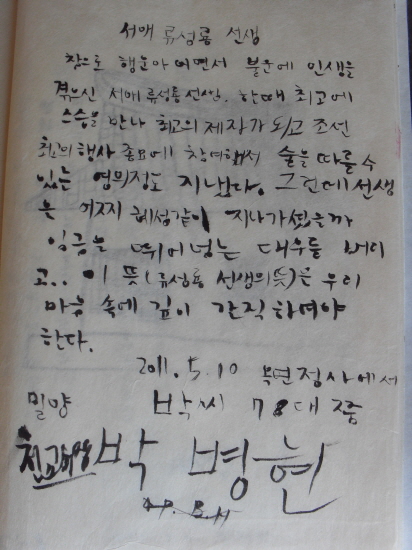 서애 류성룡 선생
참으로 행운아이면서 불운에 인생을
겪으신 서애 류성룡선생. 한때 최고에
스승을 만나 최고의 제자가 되고 조선
최고의 행사 종묘에 참여해서 술을 따를 수
있는 영의정도 지냈다. 그런데 선생
은 어찌 혜성같이 지나가셨을까
임금을 뛰어넘는 대우를 버리
고.. 이 뜻(류성룡 선생의 뜻)은 우리
마음 속에 깊이 간직하여야
한다.
2011.5.10 옥연정사에서
밀양 박씨 78대 종
박병현